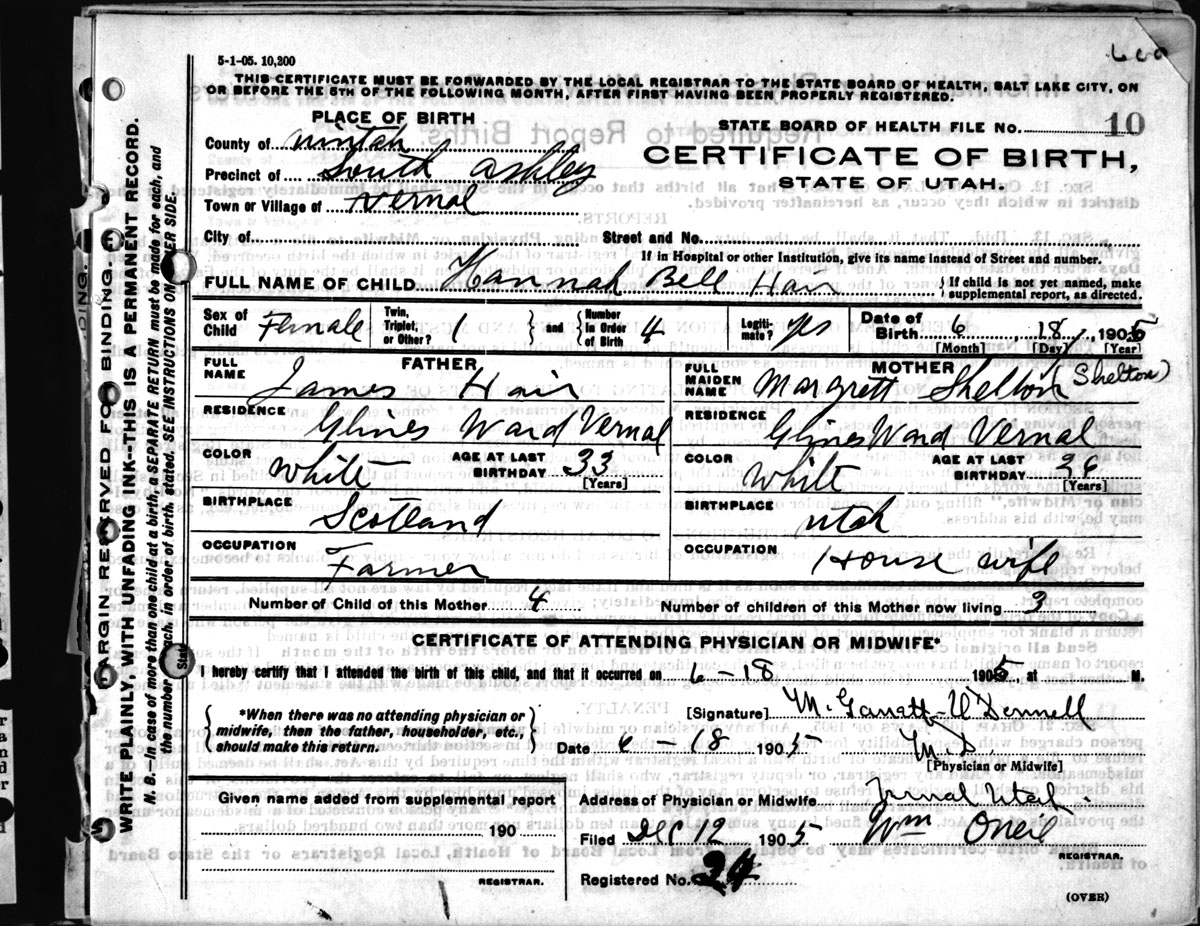 600
5-1-05. 10,200
THIS CERTIFICATE MUST BE FORWARDED BY THE LOCAL REGISTRAR TO THE STATE BOARD OF HEALTH, SALT LAKE CITY, ON
OR BEFORE THE 5TH OF THE FOLLOWING MONTH, AFTER FIRST HAVING BEEN PROPERLY REGISTERED.
PLACE OF BIRTH
STATE BOARD OF HEALTH FILE NO. 10
County of Uintah
CERTIFICATE OF BIRTH,
Precinct of South Ashley
STATE OF UTAH.
Town or Village of Vernal
City of Street and No.
If in Hospital or other Institution, give its name instead of Street and number.
FULL NAME OF CHILD Hannah Bell Hair } If child is not yet named, make supplemental report, as directed.
Sex of Child Female Twin, Triplet, or Other? 1 } and { Number in Order of Birth 4 Legiti-mate? yes Date of Birth 6, 18, 1905
[Month] [Day] [Year]
FATHER
MOTHER
FULL NAME James Hair
FULL MAIDEN NAME Margrett Shelton (Shelton)
RESIDENCE Glines Ward Vernal
RESIDENCE Glines Ward Vernal
COLOR White AGE AT LAST BIRTHDAY 33 [Years]
COLOR White AGE AT LAST BIRTHDAY 26 [Years]
BIRTHPLACE Scotland
BIRTHPLACE Utah
OCCUPATION Farmer
OCCUPATION House wife
Number of Child of this Mother 4 Number of children of this Mother now living 3
CERTIFICATE OF ATTENDING PHYSICIAN OR MIDWIFE*
I hereby certify that I attended the birth of this child, and that it occurred on 6-18 1905, at M.
{ *When there was no attending physician or midwife, then the father, householder, etc., should make this return. }
[Signature]
Date 6-18 1905 M.D.
[Physician or Midwife]
Given name added from supplemental report
190
REGISTRAR.
Address of Physician or Midwife Vernal Utah.
Filed Dec 12 1905 Wm Oneil
REGISTRAR.
Registered No. 24
(OVER)
MARGIN RESERVED FOR BINDING.
WRITE PLAINLY, WITH UNFADING INK--THIS IS A PERMANENT RECORD.
N. B.—In case of more than one child at a birth, a SEPARATE RETURN must be made for each, and
the number of each, in order of birth, stated. SEE INSTRUCTIONS ON OTHER SIDE.